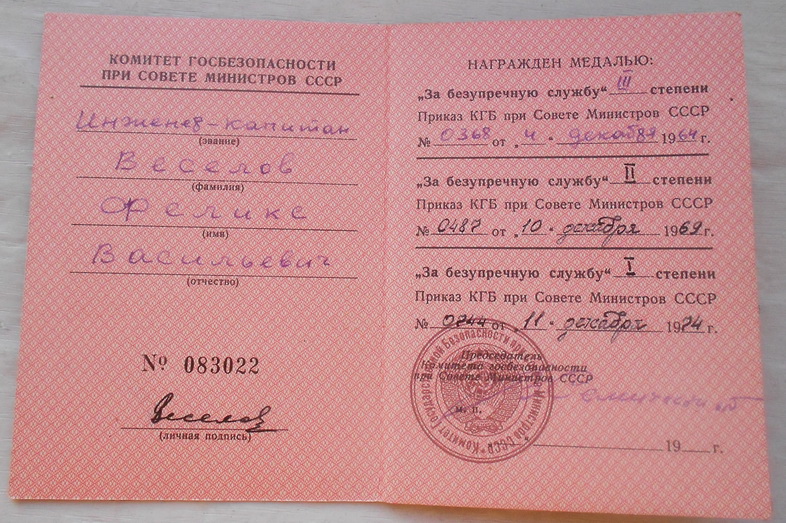 КОМИТЕТ ГОСБЕЗОПАСНОСТИ
ПРИ СОВЕТЕ МИНИСТРОВ СССР
Инженер-капитан
(звание)
Веселов
(фамилия)
Феликс
(имя)
Васильевич
(отчество)
№ 083022
Веселов
(личная подпись)
НАГРАЖДЕН МЕДАЛЬЮ:
„За безупречную службу“ III степени
Приказ КГБ при Совете Министров СССР
№ 0368 от „4“ декабря 1964 г.
„За безупречную службу“ II степени
Приказ КГБ при Совете Министров СССР
№ 0487 от „10“ декабря 1969 г.
„За безупречную службу“ I степени
Приказ КГБ при Совете Министров СССР
№ 0744 от „11“ декабря 1974 г.
Председатель
Комитета госбезопасности
при Совете Министров СССР
м. п.
19 г.
Комитет Государственной Безопасности при Совете Министров СССР